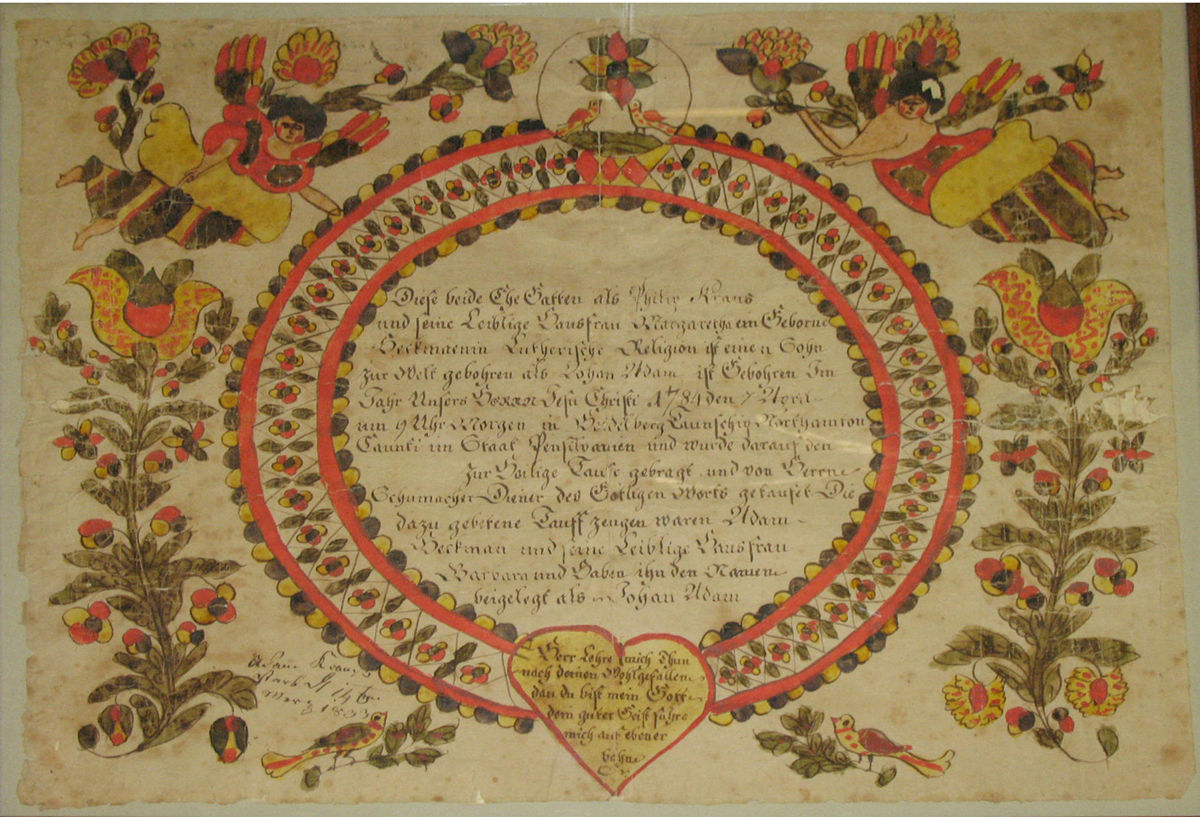 Diese beide Ehe Gatten als Philip Kraus
und seine Leiblige Hausfrau Margaretha ein Geborne
Heckmaenin Lutherische Religion ist einen Sohn
zur Welt gebohren als Johan Adam ist Gebohren Im
Jahr Unsers Herrn Jesu Christi 1784 den 7 April
um 9 Uhr Morgen in Heidelberg Taunschip Northamton
Caunti im Staat Pensilvanien und wurde darauf den
zur Heilige Taufe gebragt und von Herrn
Schumacher Diener des Götligen Worts getaufet Die
dazu gebetene Tauff zeugen waren Adam
Heckman und seine Leiblige Hausfrau
Barbara und Haben ihn den Namen
beigelegt als Johan Adam
Herr Lehre mich Thun
nach deinen Wohlgefallen
dan du bist mein Gott
dein guter Geist führe
mich auf ebener
bahn
Adam Kraus
starb 14
Merz 1833